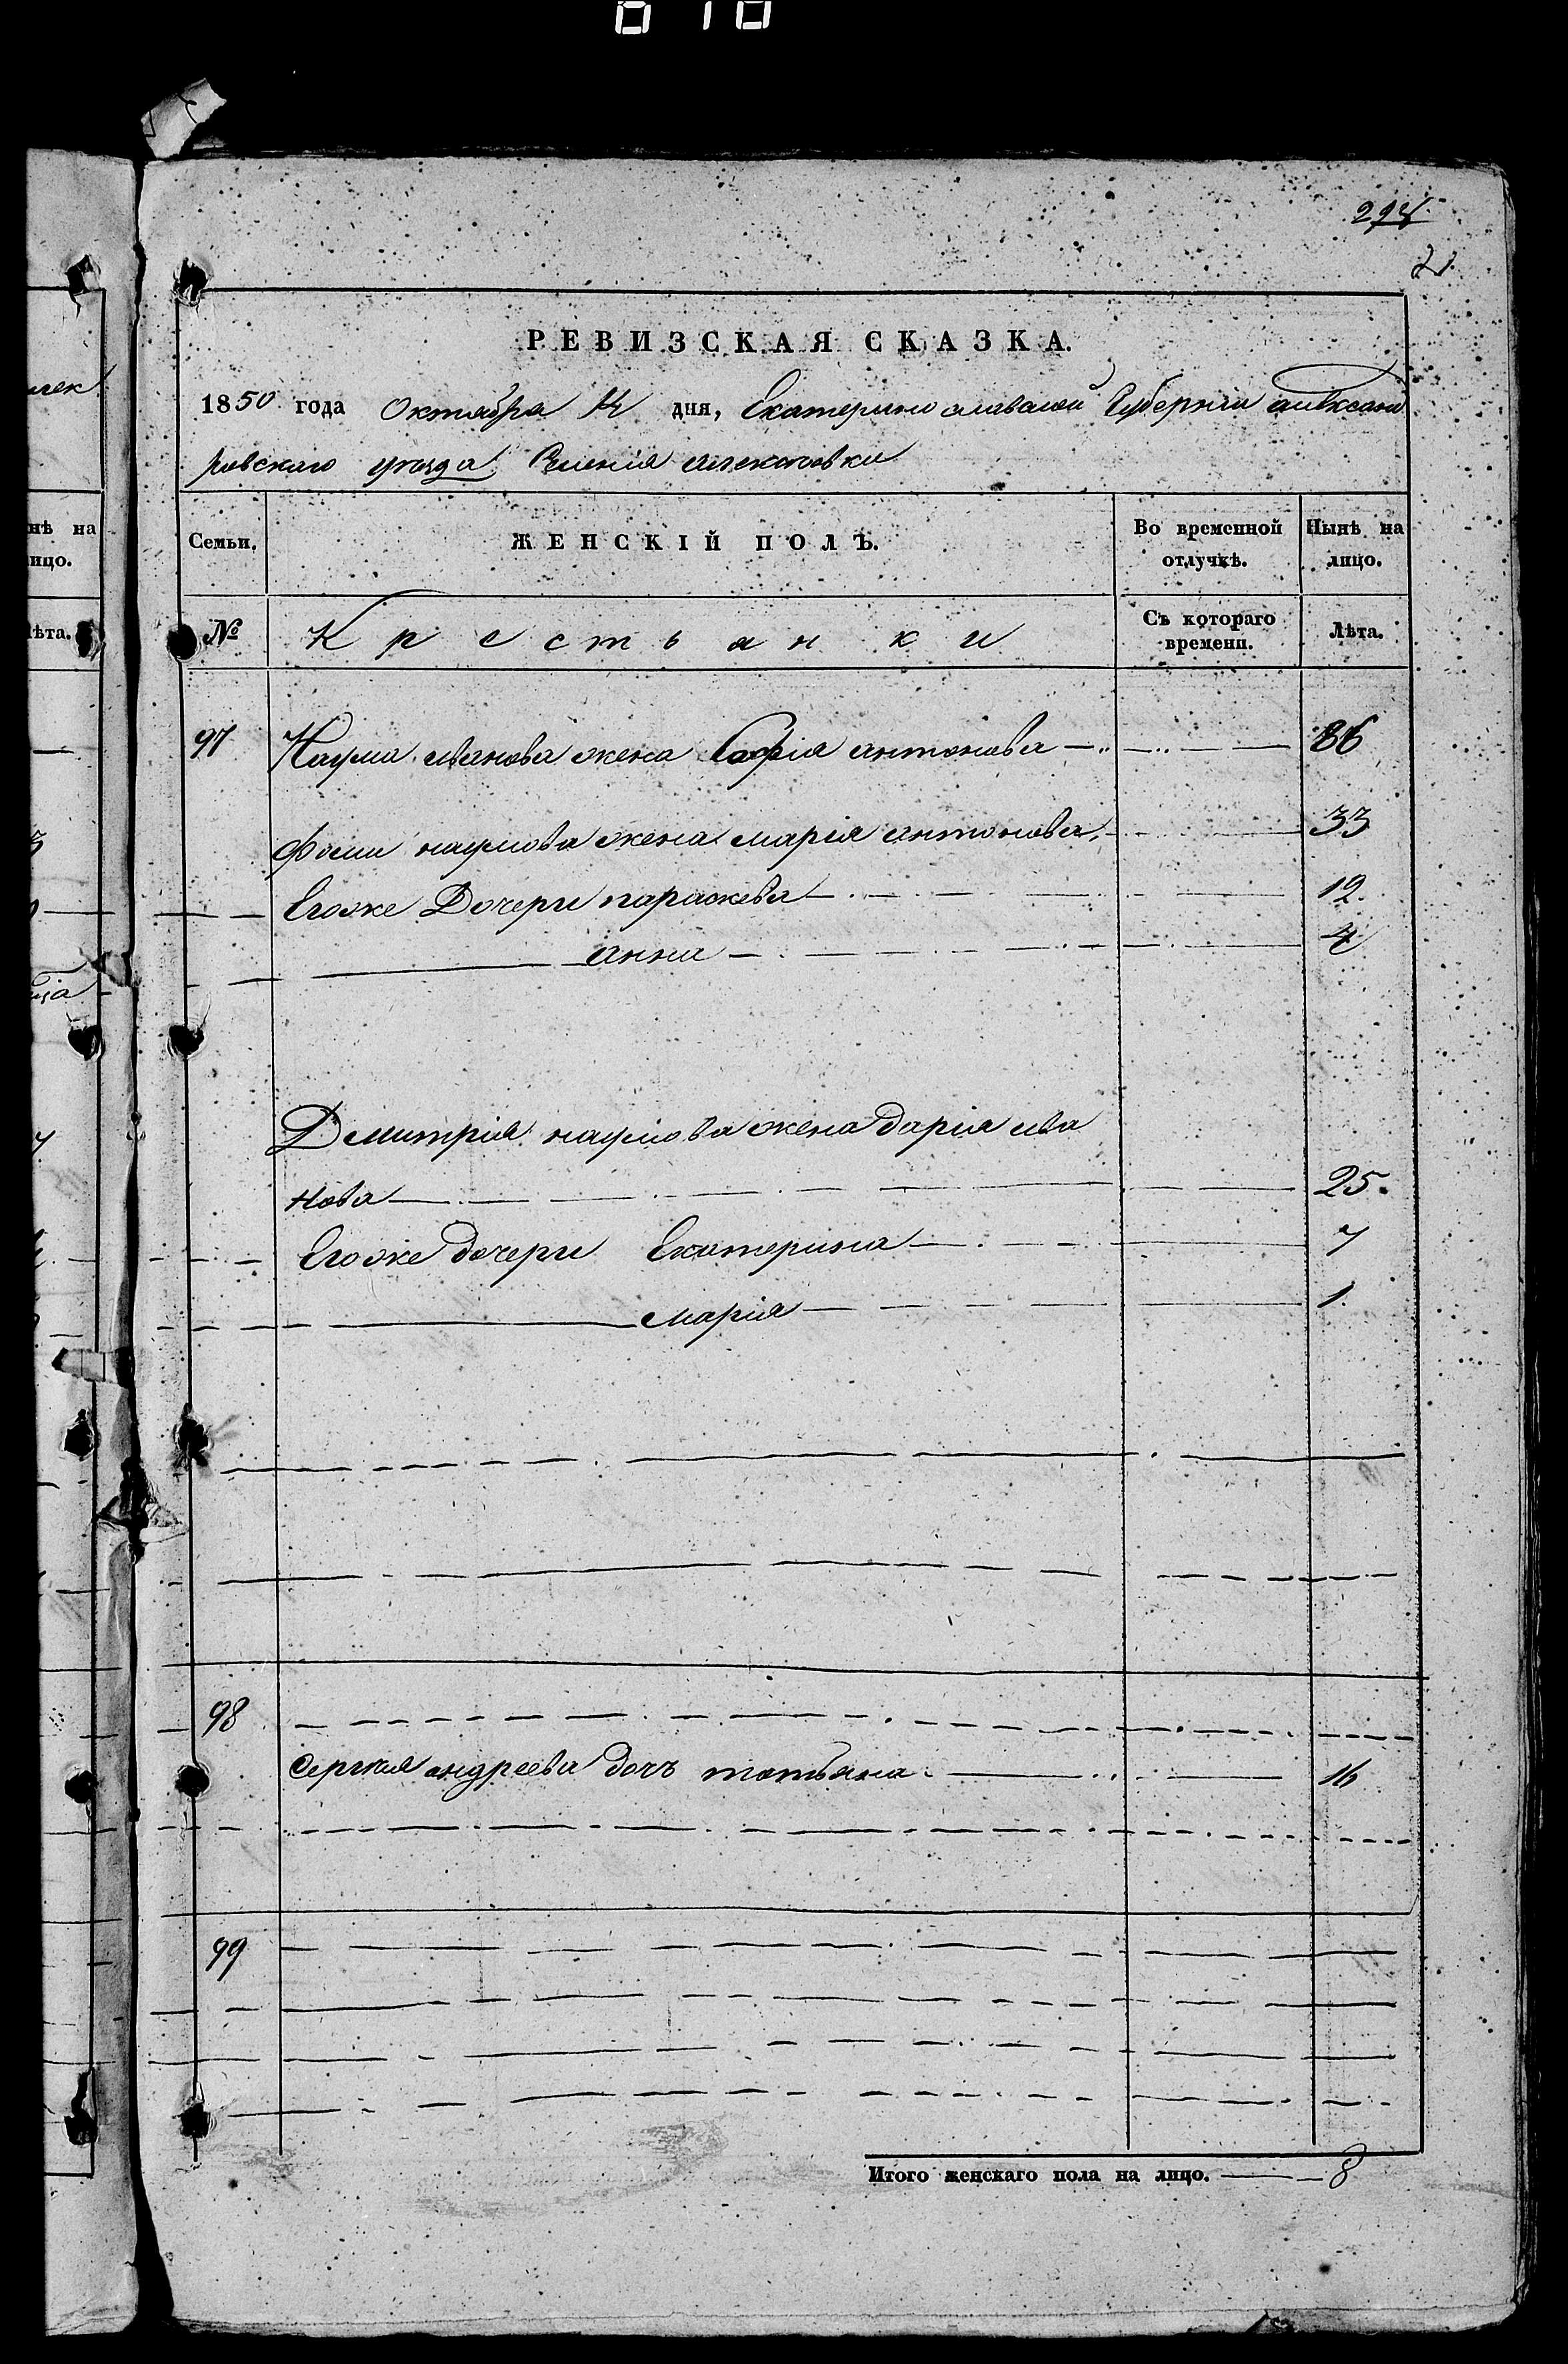 21.
РЕВИЗСКАЯ СКАЗКА.
1850 года Октября 14 дня, Екатеринославской Губерніи александ
ровскаго уезда Селенія
Семьи. ЖЕНСКІЙ ПОЛЪ. Во временной отлучкѣ. Нынѣ на лицо.
№ Крестьянки Съ котораго времени. Лѣта.
97 Наума иванова жена Софія антонова 86
Фомы наумова жена марія антонова 33
Егоже Дочери параскева 12.
анна 4
Дмитрія наумова жена дарія ива
нова 25.
Егоже дочери Екатерина 7
марія 1.
98
Сергия андреева дочь татьяна 16
99
Итого женскаго пола на лицо. 8
лек
нѣ на
ицо.
ѣта.